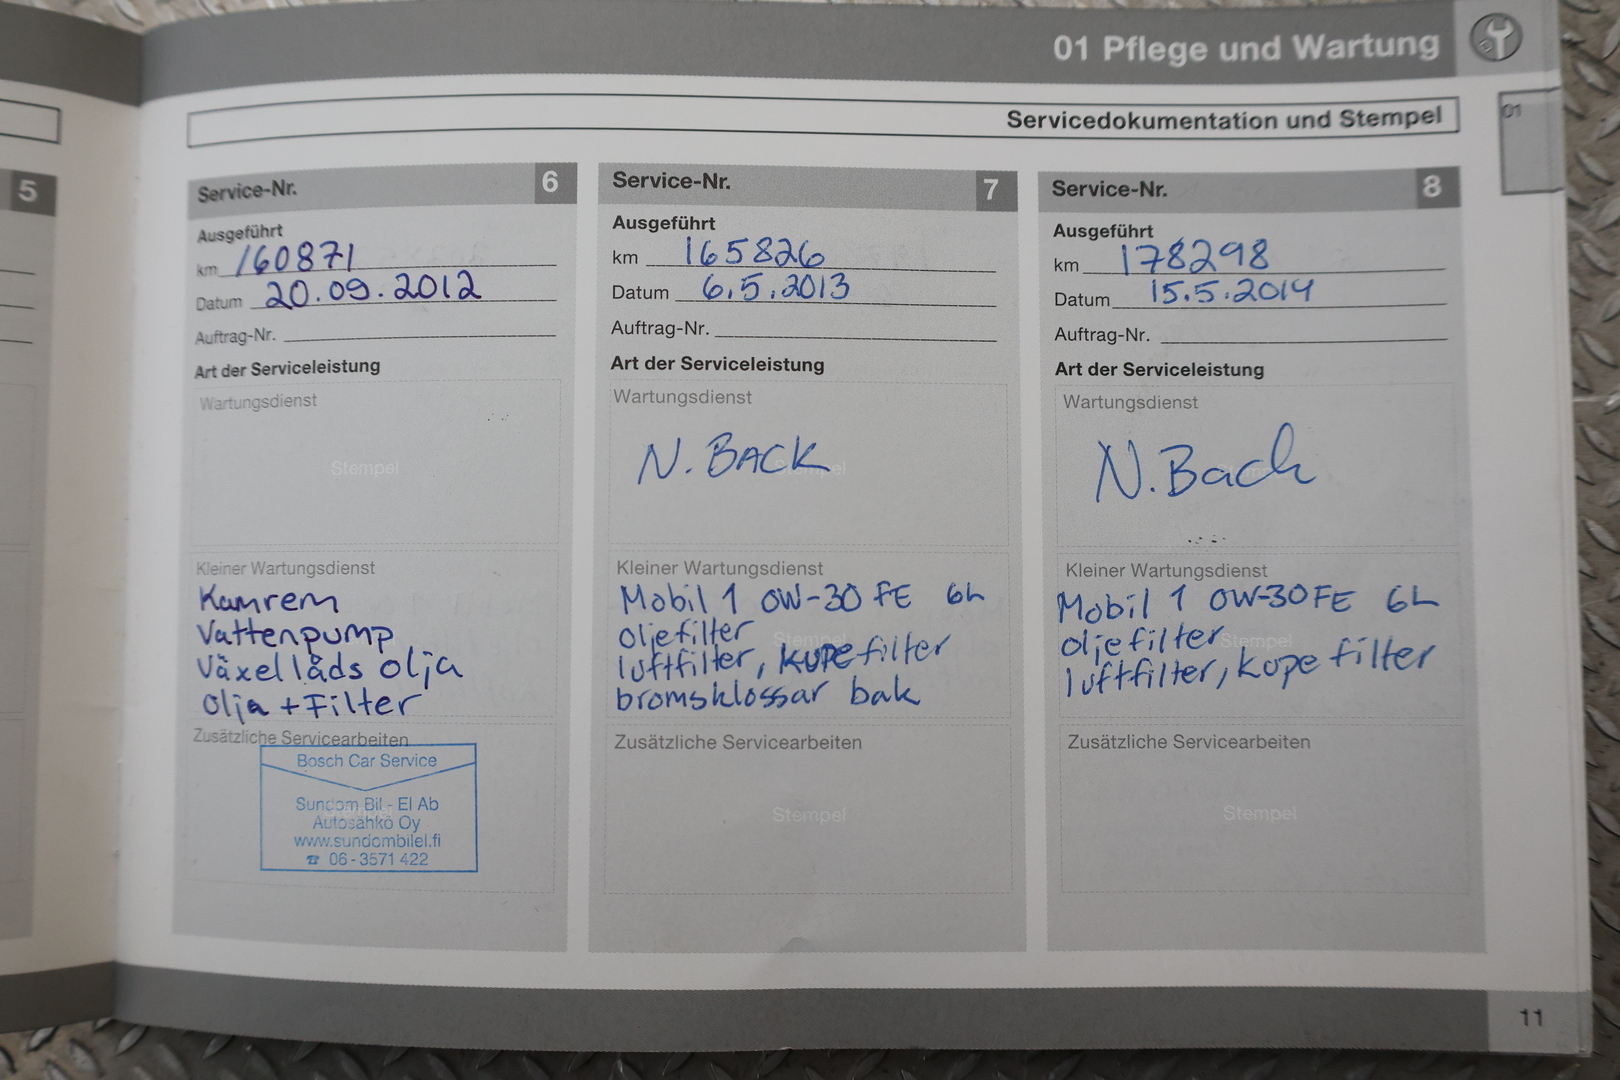 01 Pflege und Wartung
01
Servicedokumentation und Stempel
5
Service-Nr. 6
Ausgeführt
km 160871
Datum 20.09.2012
Auftrag-Nr.
Art der Serviceleistung
Wartungsdienst
Stempel
Kleiner Wartungsdienst
Kamrem
Vattenpump
Växellåds olja
Olja + Filter
Zusätzliche Servicearbeiten
Bosch Car Service
Stempel
Sundom Bil - El Ab
Autosähkö Oy
www.sundombilel.fi
☎ 06-3571 422
Service-Nr. 7
Ausgeführt
km 165826
Datum 6.5.2013
Auftrag-Nr.
Art der Serviceleistung
Wartungsdienst
Stempel
N. BACK
Kleiner Wartungsdienst
Mobil 1 0W-30 FE 6L
oljefilter
Stempel
luftfilter, kupefilter
bromsklossar bak
Zusätzliche Servicearbeiten
Stempel
Service-Nr. 8
Ausgeführt
km 178298
Datum 15.5.2014
Auftrag-Nr.
Art der Serviceleistung
Wartungsdienst
Stempel
N. Back
Kleiner Wartungsdienst
Mobil 1 0W-30 FE 6L
oljefilter
Stempel
luftfilter, kupe filter
Zusätzliche Servicearbeiten
Stempel
11